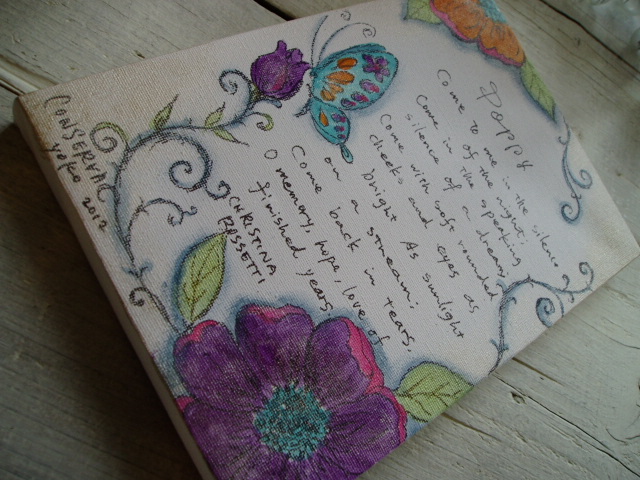 Poppy
Come to me in the silence
of the night;
Come in the speaking
silence of a dream;
Come with soft rounded
cheeks and eyes as
bright As sunlight
on a stream;
Come back in tears,
O memory, hope, love of
finished years
CHRISTINA
ROSSETTI
CONSERVA
yoko 2012